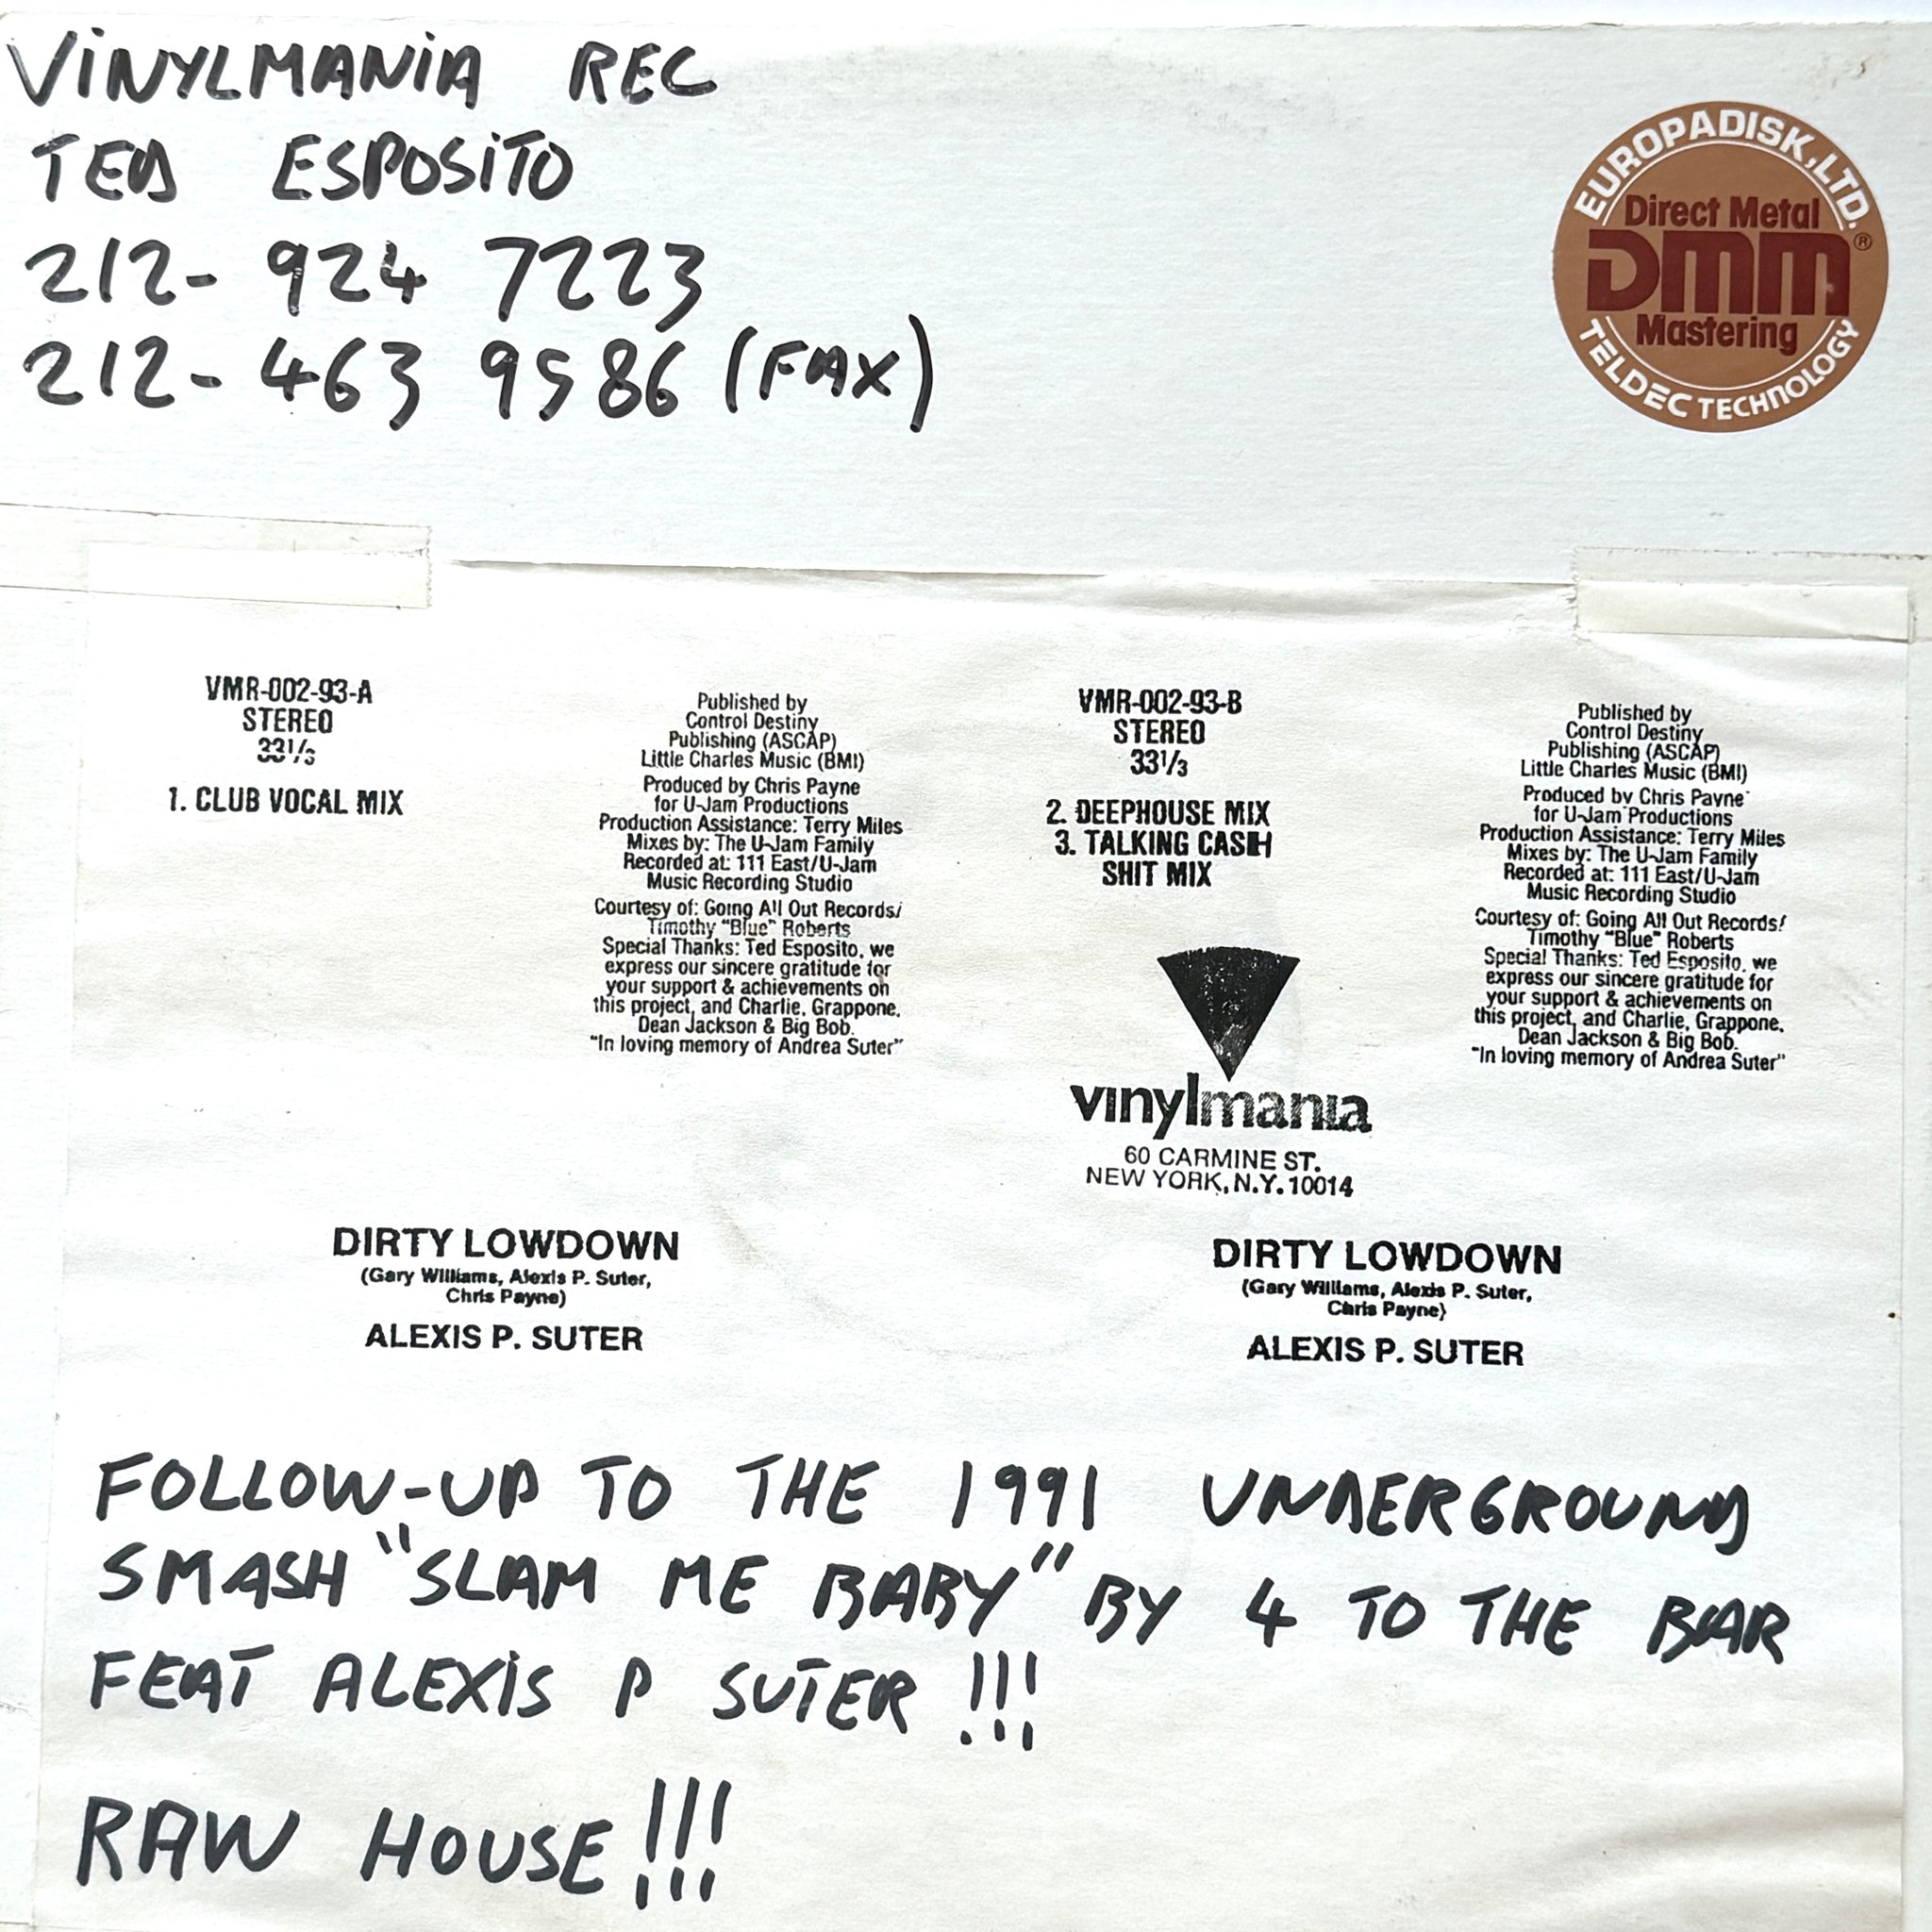 VINYLMANIA REC
TED ESPOSITO
212- 924 7223
212- 463 9586 (FAX)
EUROPADISK, LTD.
Direct Metal
DMM®
Mastering
TELDEC TECHNOLOGY
VMR-002-93-A
STEREO
33⅓
1. CLUB VOCAL MIX
Published by
Control Destiny
Publishing (ASCAP)
Little Charles Music (BMI)
Produced by Chris Payne
for U-Jam Productions
Production Assistance: Terry Miles
Mixes by: The U-Jam Family
Recorded at: 111 East/U-Jam
Music Recording Studio
Courtesy of: Going All Out Records/
Timothy "Blue" Roberts
Special Thanks: Ted Esposito, we
express our sincere gratitude for
your support & achievements on
this project, and Charlie, Grappone,
Dean Jackson & Big Bob.
"In loving memory of Andrea Suter"
VMR-002-93-B
STEREO
33⅓
2. DEEPHOUSE MIX
3. TALKING CASH
SHIT MIX
vinylmania
60 CARMINE ST.
NEW YORK, N.Y. 10014
Published by
Control Destiny
Publishing (ASCAP)
Little Charles Music (BMI)
Produced by Chris Payne
for U-Jam Productions
Production Assistance: Terry Miles
Mixes by: The U-Jam Family
Recorded at: 111 East/U-Jam
Music Recording Studio
Courtesy of: Going All Out Records/
Timothy "Blue" Roberts
Special Thanks: Ted Esposito, we
express our sincere gratitude for
your support & achievements on
this project, and Charlie, Grappone,
Dean Jackson & Big Bob.
"In loving memory of Andrea Suter"
DIRTY LOWDOWN
(Gary Williams, Alexis P. Suter,
Chris Payne)
ALEXIS P. SUTER
DIRTY LOWDOWN
(Gary Williams, Alexis P. Suter,
Chris Payne)
ALEXIS P. SUTER
FOLLOW-UP TO THE 1991 UNDERGROUND
SMASH "SLAM ME BABY" BY 4 TO THE BAR
FEAT ALEXIS P SUTER !!!
RAW HOUSE!!!